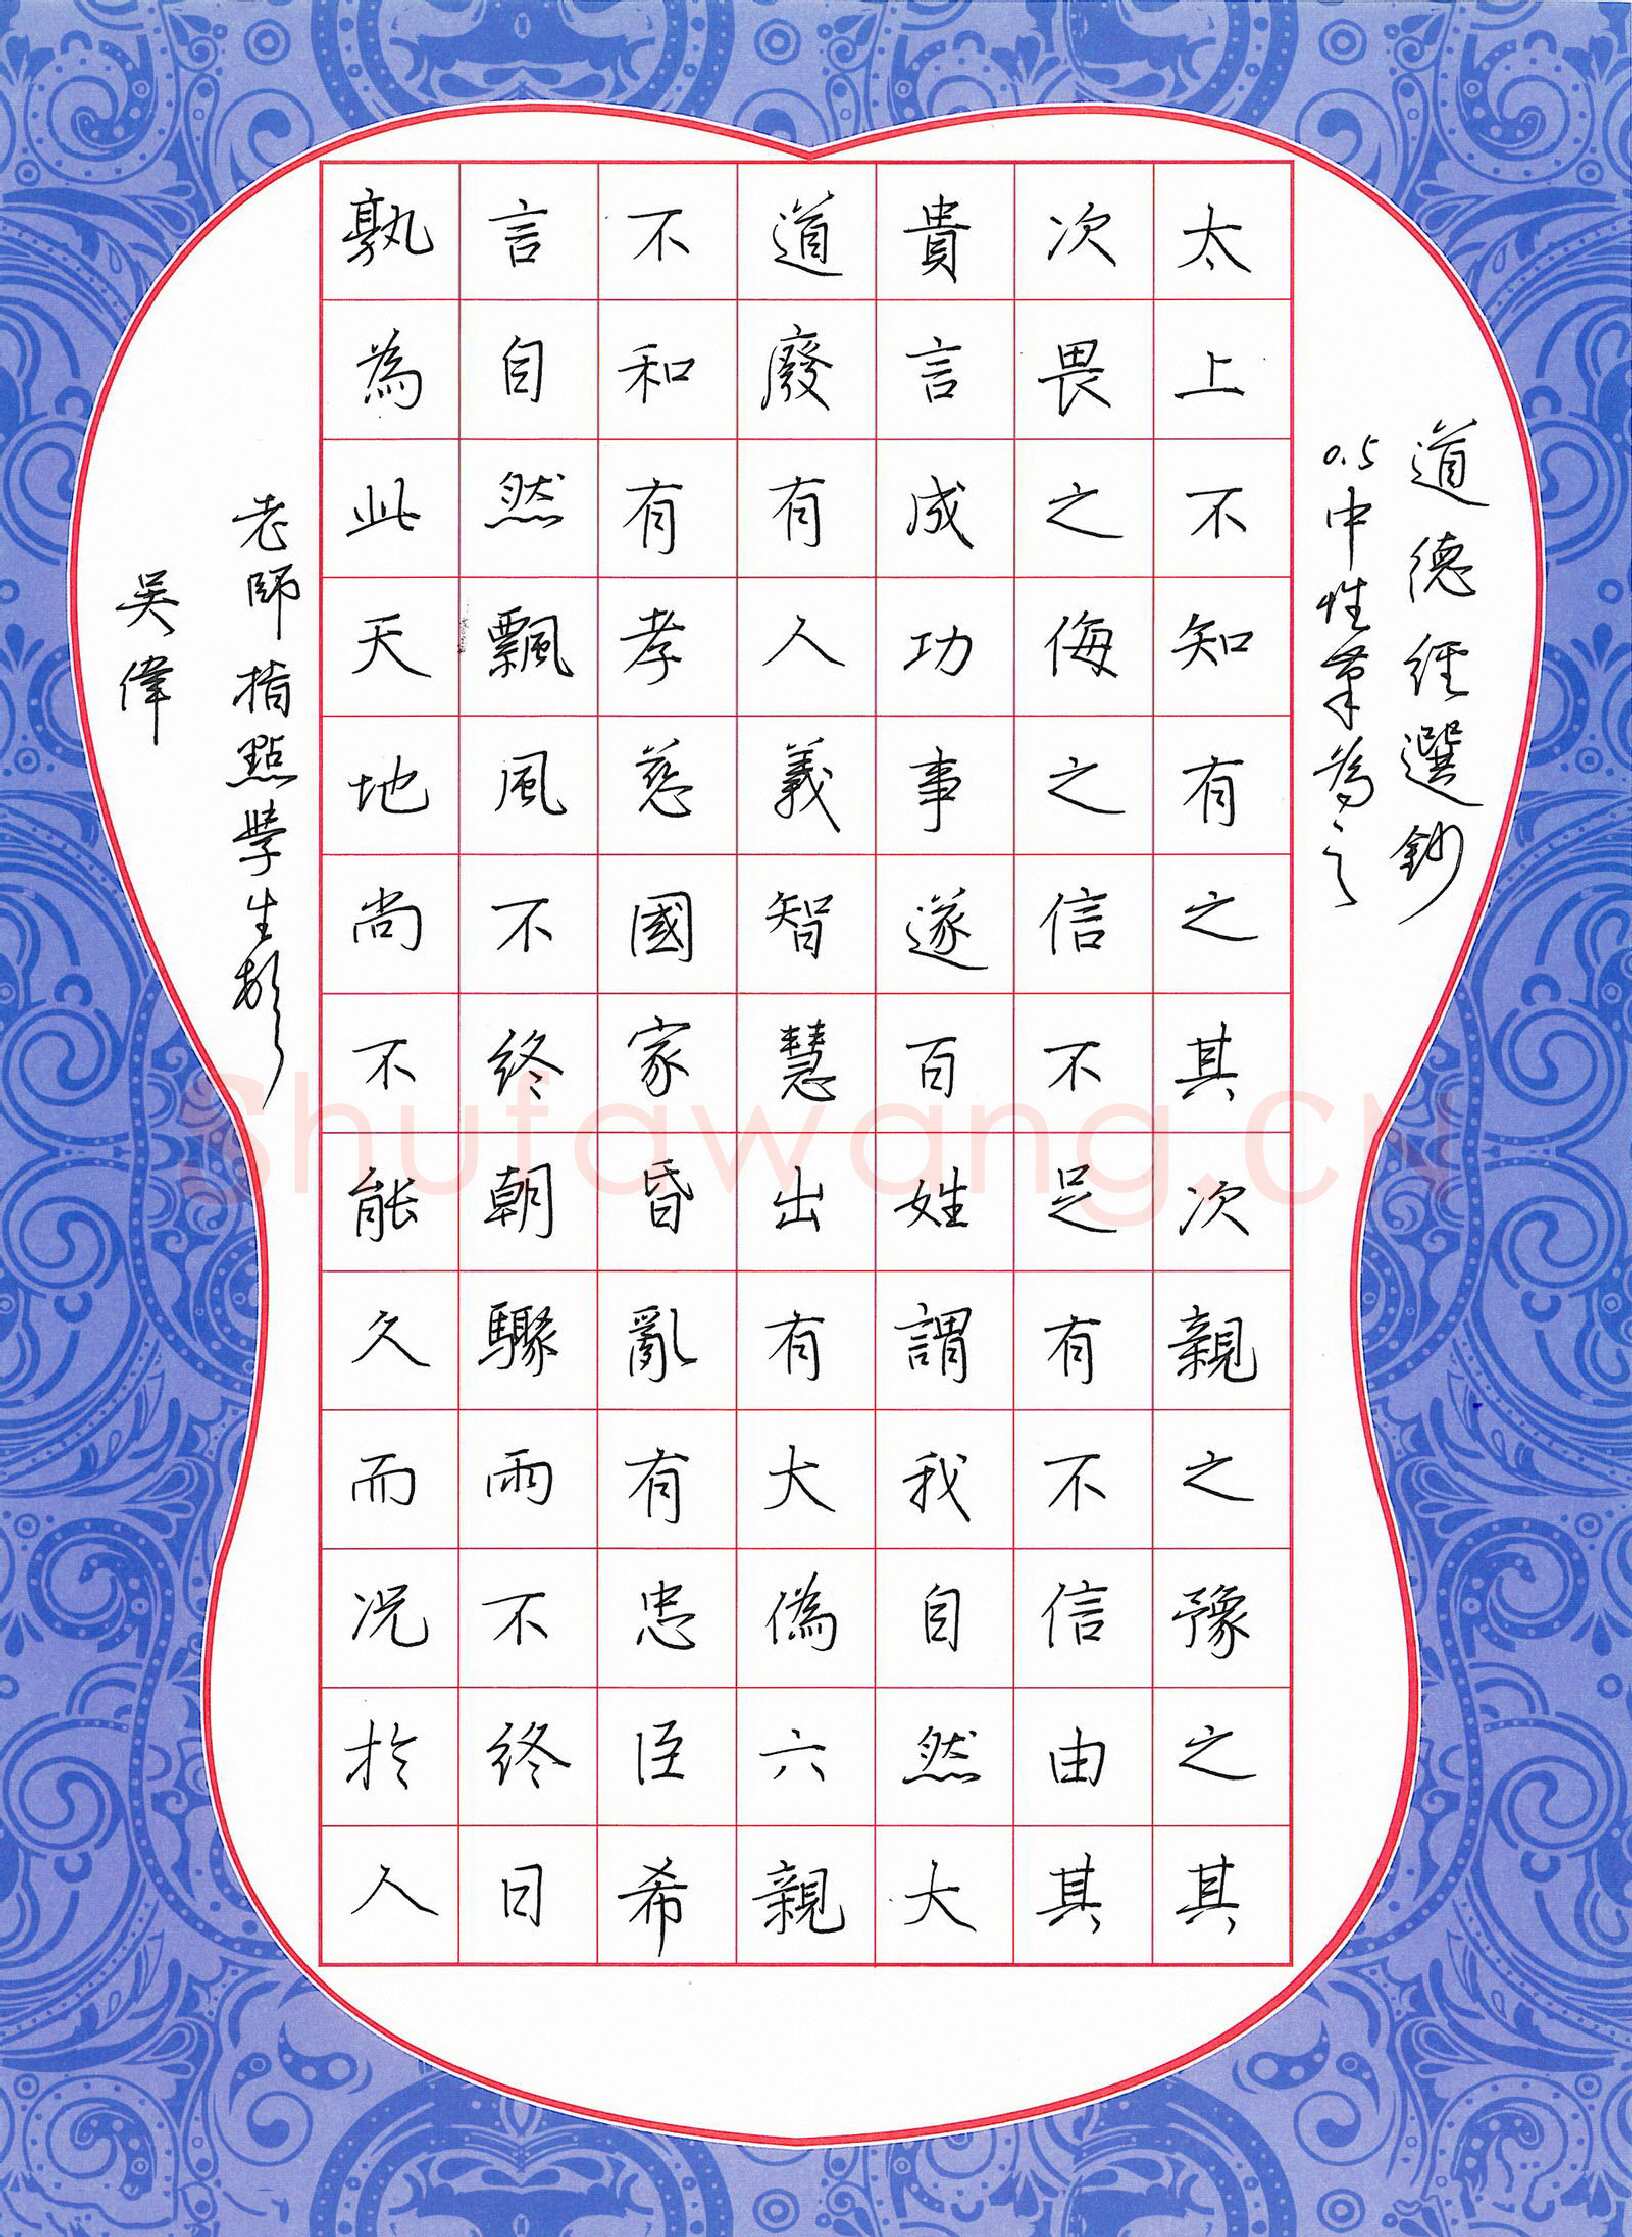 道德經選鈔
0.5中性筆為之
太上不知有之其次親之豫之其
次畏之侮之信不足有不信由其
貴言成功事遂百姓謂我自然大
道廢有人義智慧出有大偽六親
不和有孝慈國家昏亂有忠臣希
言自然飄風不終朝驟雨不終日
孰為此天地尚不能久而况於人
老師指點學生
吳偉
Shufawang.CN